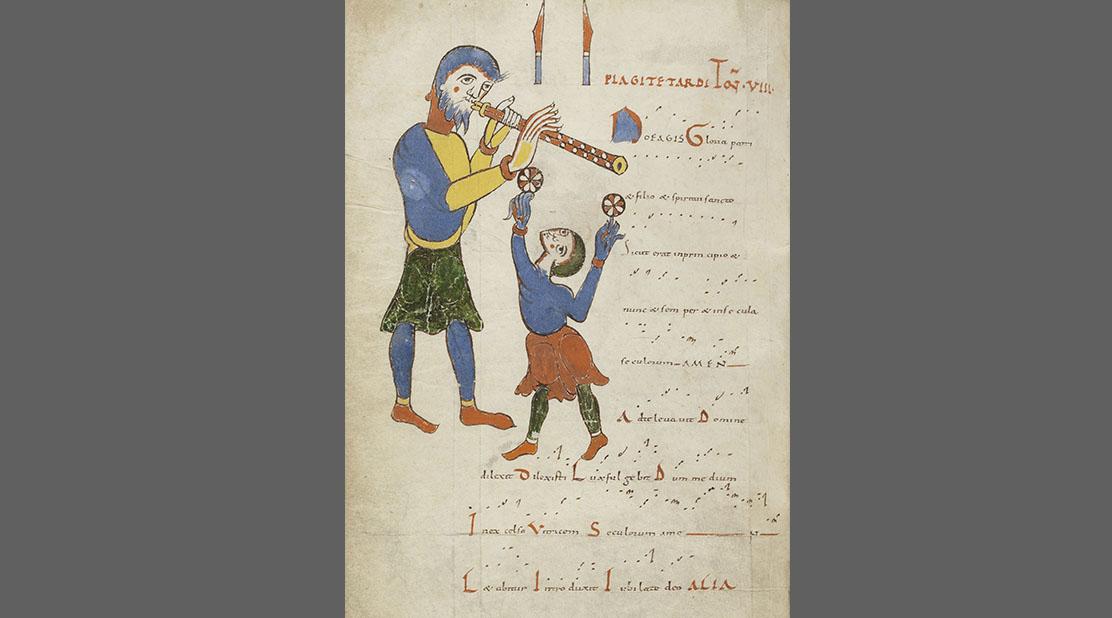 PLAGITETARDI Toñ · VIII ·
NOEAGIS Gloria patri
& filio & spiritui sancto
Sicut erat inprincipio &
nunc & semper & inse cula
seculorum AMEN
Adte levavit Domine
dilexit Dilexisti Lux fulgebit Dum medium
Inex celso Victricem Seculorum ame N
L& abitur Introduxit Iubilate deo ALIA